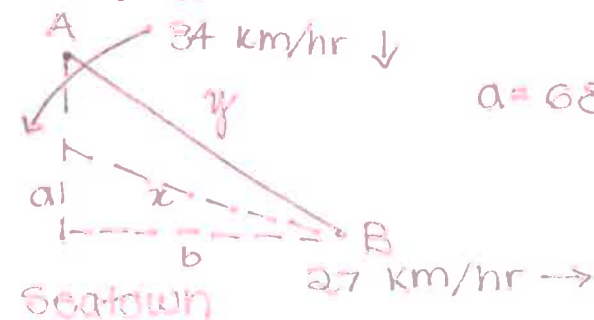 A 34 km/hr ↓
y
a = 68
a x
b B
27 km/hr →
Seatown